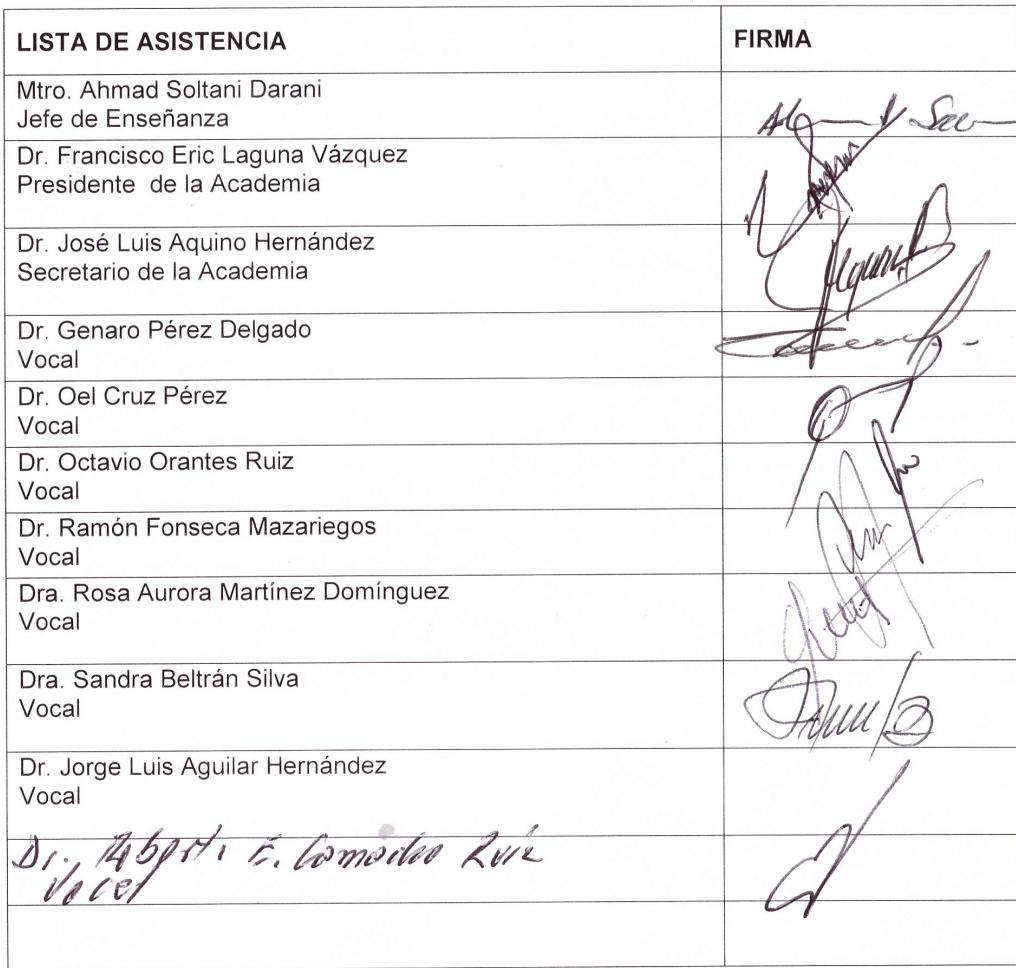 LISTA DE ASISTENCIA
FIRMA
Mtro. Ahmad Soltani Darani
Jefe de Enseñanza
Dr. Francisco Eric Laguna Vázquez
Presidente de la Academia
Dr. José Luis Aquino Hernández
Secretario de la Academia
Dr. Genaro Pérez Delgado
Vocal
Dr. Oel Cruz Pérez
Vocal
Dr. Octavio Orantes Ruiz
Vocal
Dr. Ramón Fonseca Mazariegos
Vocal
Dra. Rosa Aurora Martínez Domínguez
Vocal
Dra. Sandra Beltrán Silva
Vocal
Dr. Jorge Luis Aguilar Hernández
Vocal
Dr. E. Ruiz
Vocal